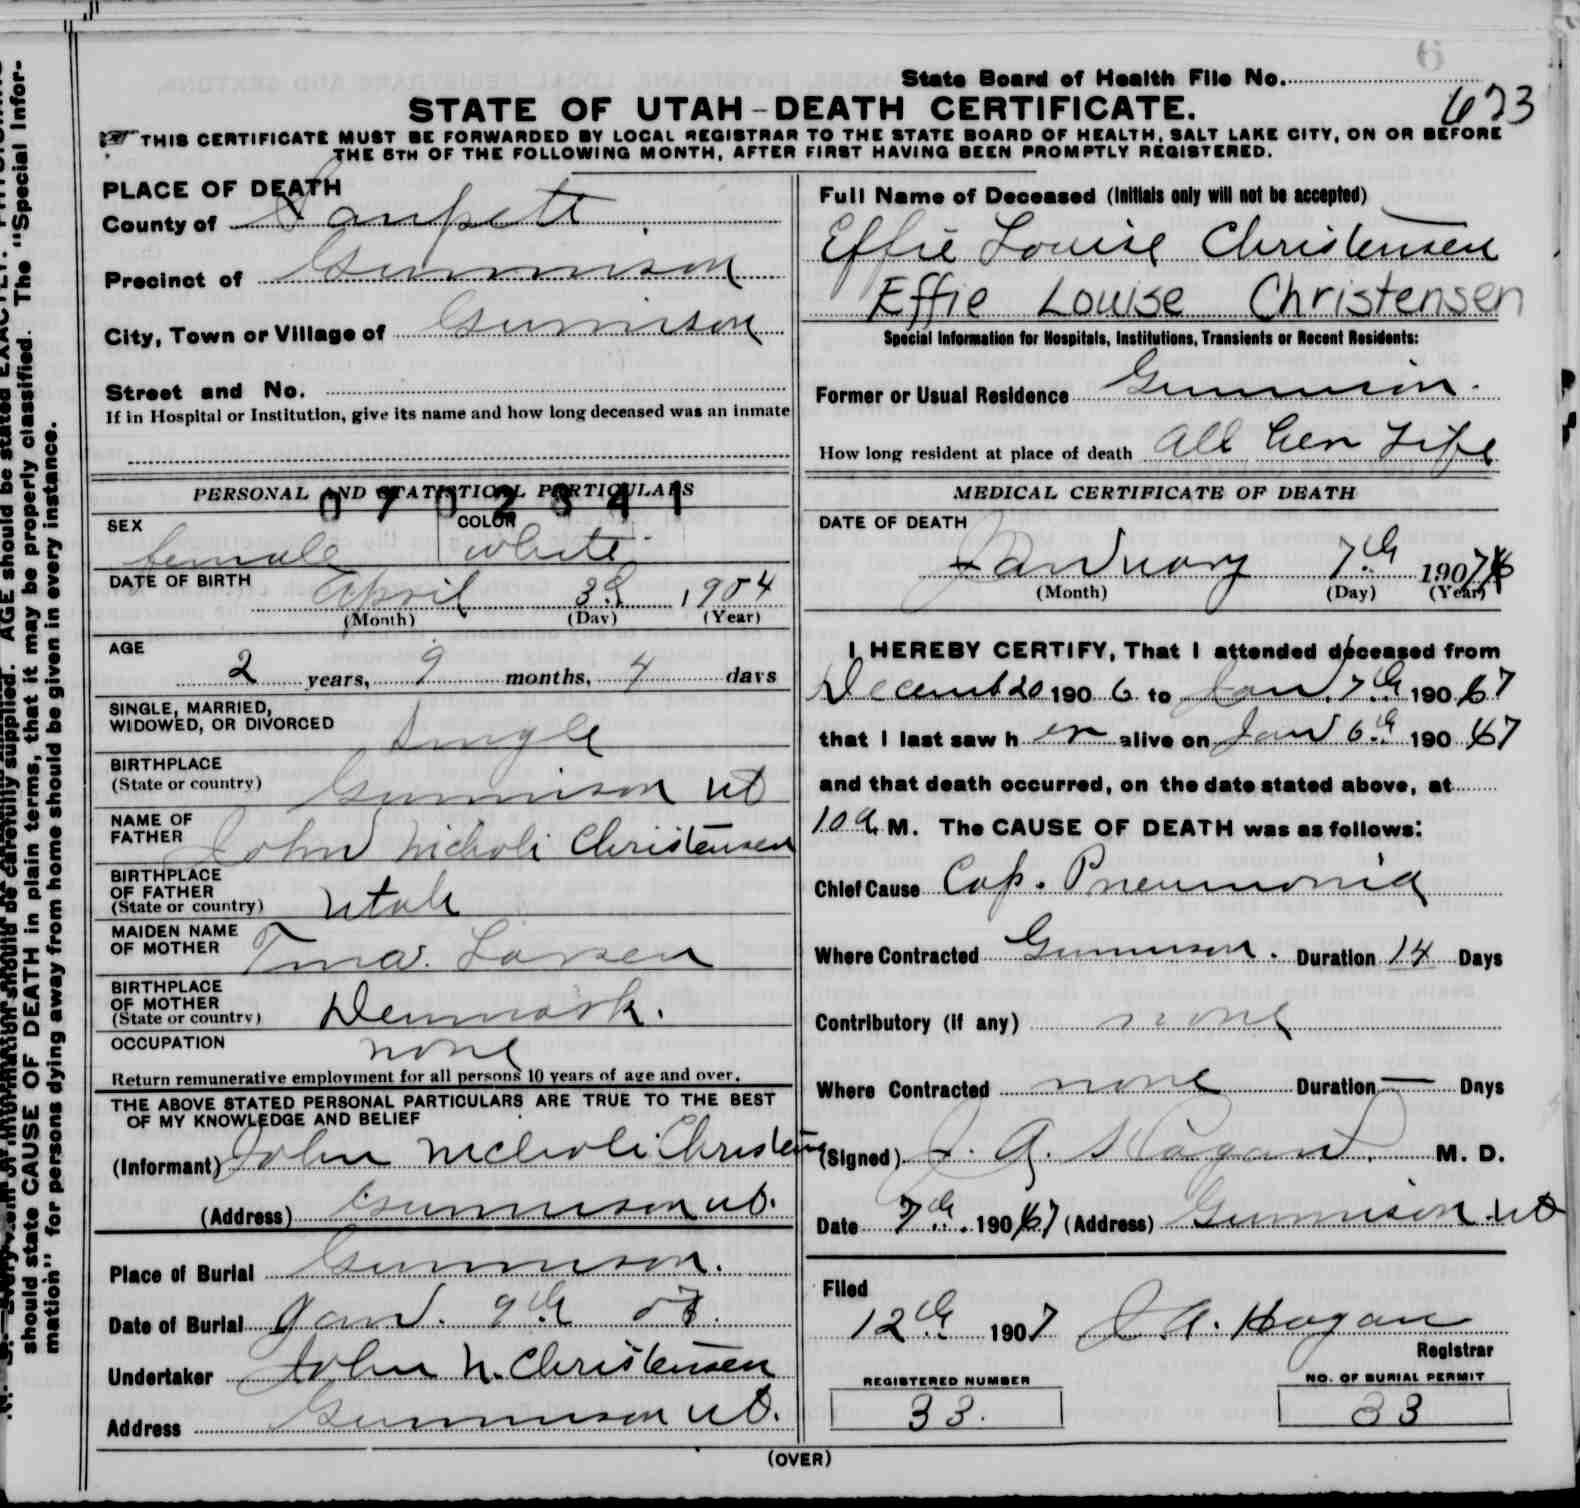 State Board of Health File No.
623
STATE OF UTAH - DEATH CERTIFICATE.
THIS CERTIFICATE MUST BE FORWARDED BY LOCAL REGISTRAR TO THE STATE BOARD OF HEALTH, SALT LAKE CITY, ON OR BEFORE
THE 5TH OF THE FOLLOWING MONTH, AFTER FIRST HAVING BEEN PROMPTLY REGISTERED.
PLACE OF DEATH
County of Sanpete
Precinct of Gunnison
City, Town or Village of Gunnison
Street and No.
If in Hospital or Institution, give its name and how long deceased was an inmate
PERSONAL AND STATISTICAL PARTICULARS
0702341
SEX female COLOR white
DATE OF BIRTH April 3d 1904
(Month) (Day) (Year)
AGE
2 years, 9 months, 4 days
SINGLE, MARRIED,
WIDOWED, OR DIVORCED Single
BIRTHPLACE
(State or country) Gunnison ut
NAME OF
FATHER John Nicholi Christensen
BIRTHPLACE
OF FATHER
(State or country) Utah
MAIDEN NAME
OF MOTHER Tina Larsen
BIRTHPLACE
OF MOTHER
(State or country) Denmark.
OCCUPATION none
Return remunerative employment for all persons 10 years of age and over.
THE ABOVE STATED PERSONAL PARTICULARS ARE TRUE TO THE BEST
OF MY KNOWLEDGE AND BELIEF
(Informant) John Nicholi Christensen
(Address) Gunnison ut.
Place of Burial Gunnison.
Date of Burial Jan. 9th 07.
Undertaker John N. Christensen
Address Gunnison ut.
Full Name of Deceased (Initials only will not be accepted)
Effie Louise Christensen
Effie Louise Christensen
Special Information for Hospitals, Institutions, Transients or Recent Residents:
Former or Usual Residence Gunnison.
How long resident at place of death all her Life
MEDICAL CERTIFICATE OF DEATH
DATE OF DEATH
January 7th 1907
(Month) (Day) (Year)
I HEREBY CERTIFY, That I attended deceased from
Decemb 20 190 6 to Jan. 7th 190 7
that I last saw h er alive on Jan 6th 190 7
and that death occurred, on the date stated above, at
10 a M. The CAUSE OF DEATH was as follows:
Chief Cause Cap. Pneumonia
Where Contracted Gunnison. Duration 14 Days
Contributory (if any) none
Where Contracted none Duration — Days
(Signed) J. A. Hagan. M. D.
Date 7th. 190 7 (Address) Gunnison ut
Filed
12th 1907 J A. Hagan
Registrar
REGISTERED NUMBER
33.
NO. OF BURIAL PERMIT
33
(OVER)
should state CAUSE OF DEATH in plain terms, that it may be properly classified. The "Special Infor-
mation" for persons dying away from home should be given in every instance.